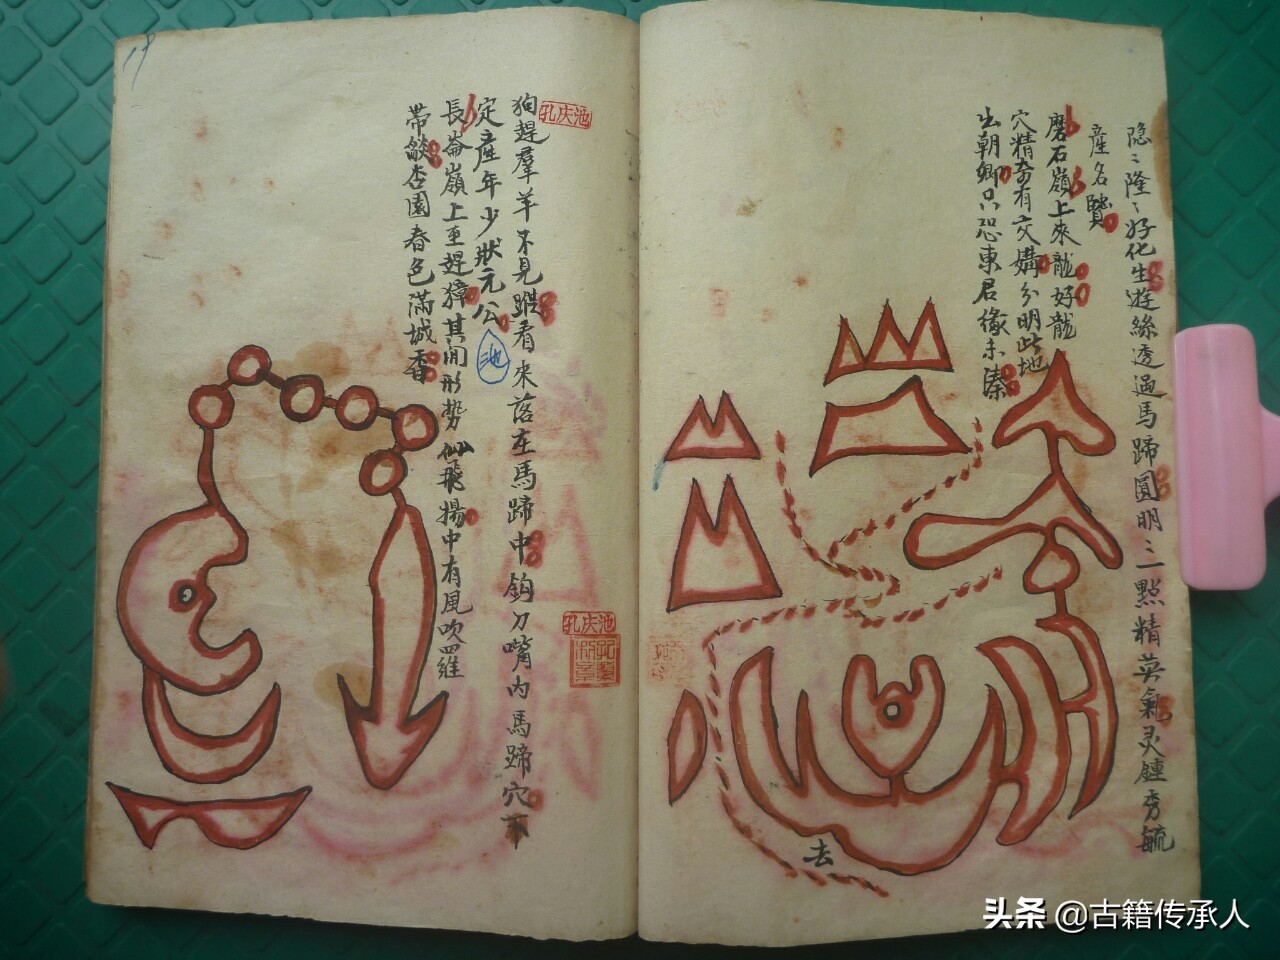 隐〻隆〻好化生遊絲透過馬蹄圓明三點精英氣灵鍾秀毓
產名賢
磨石嶺上來龍好龍
穴精奇有交媾分明此地
出朝卿只恐東君緣未臻
去
狗趕羣羊不見蹤看來落在馬蹄中鈎刀嘴內馬蹄穴
定產年少狀元公
長崙嶺上至趕獐其间形势仙飛揚中有風吹羅
帶燄杏園春色滿城香
池
孔庆池
孔庆池
头条 @古籍传承人